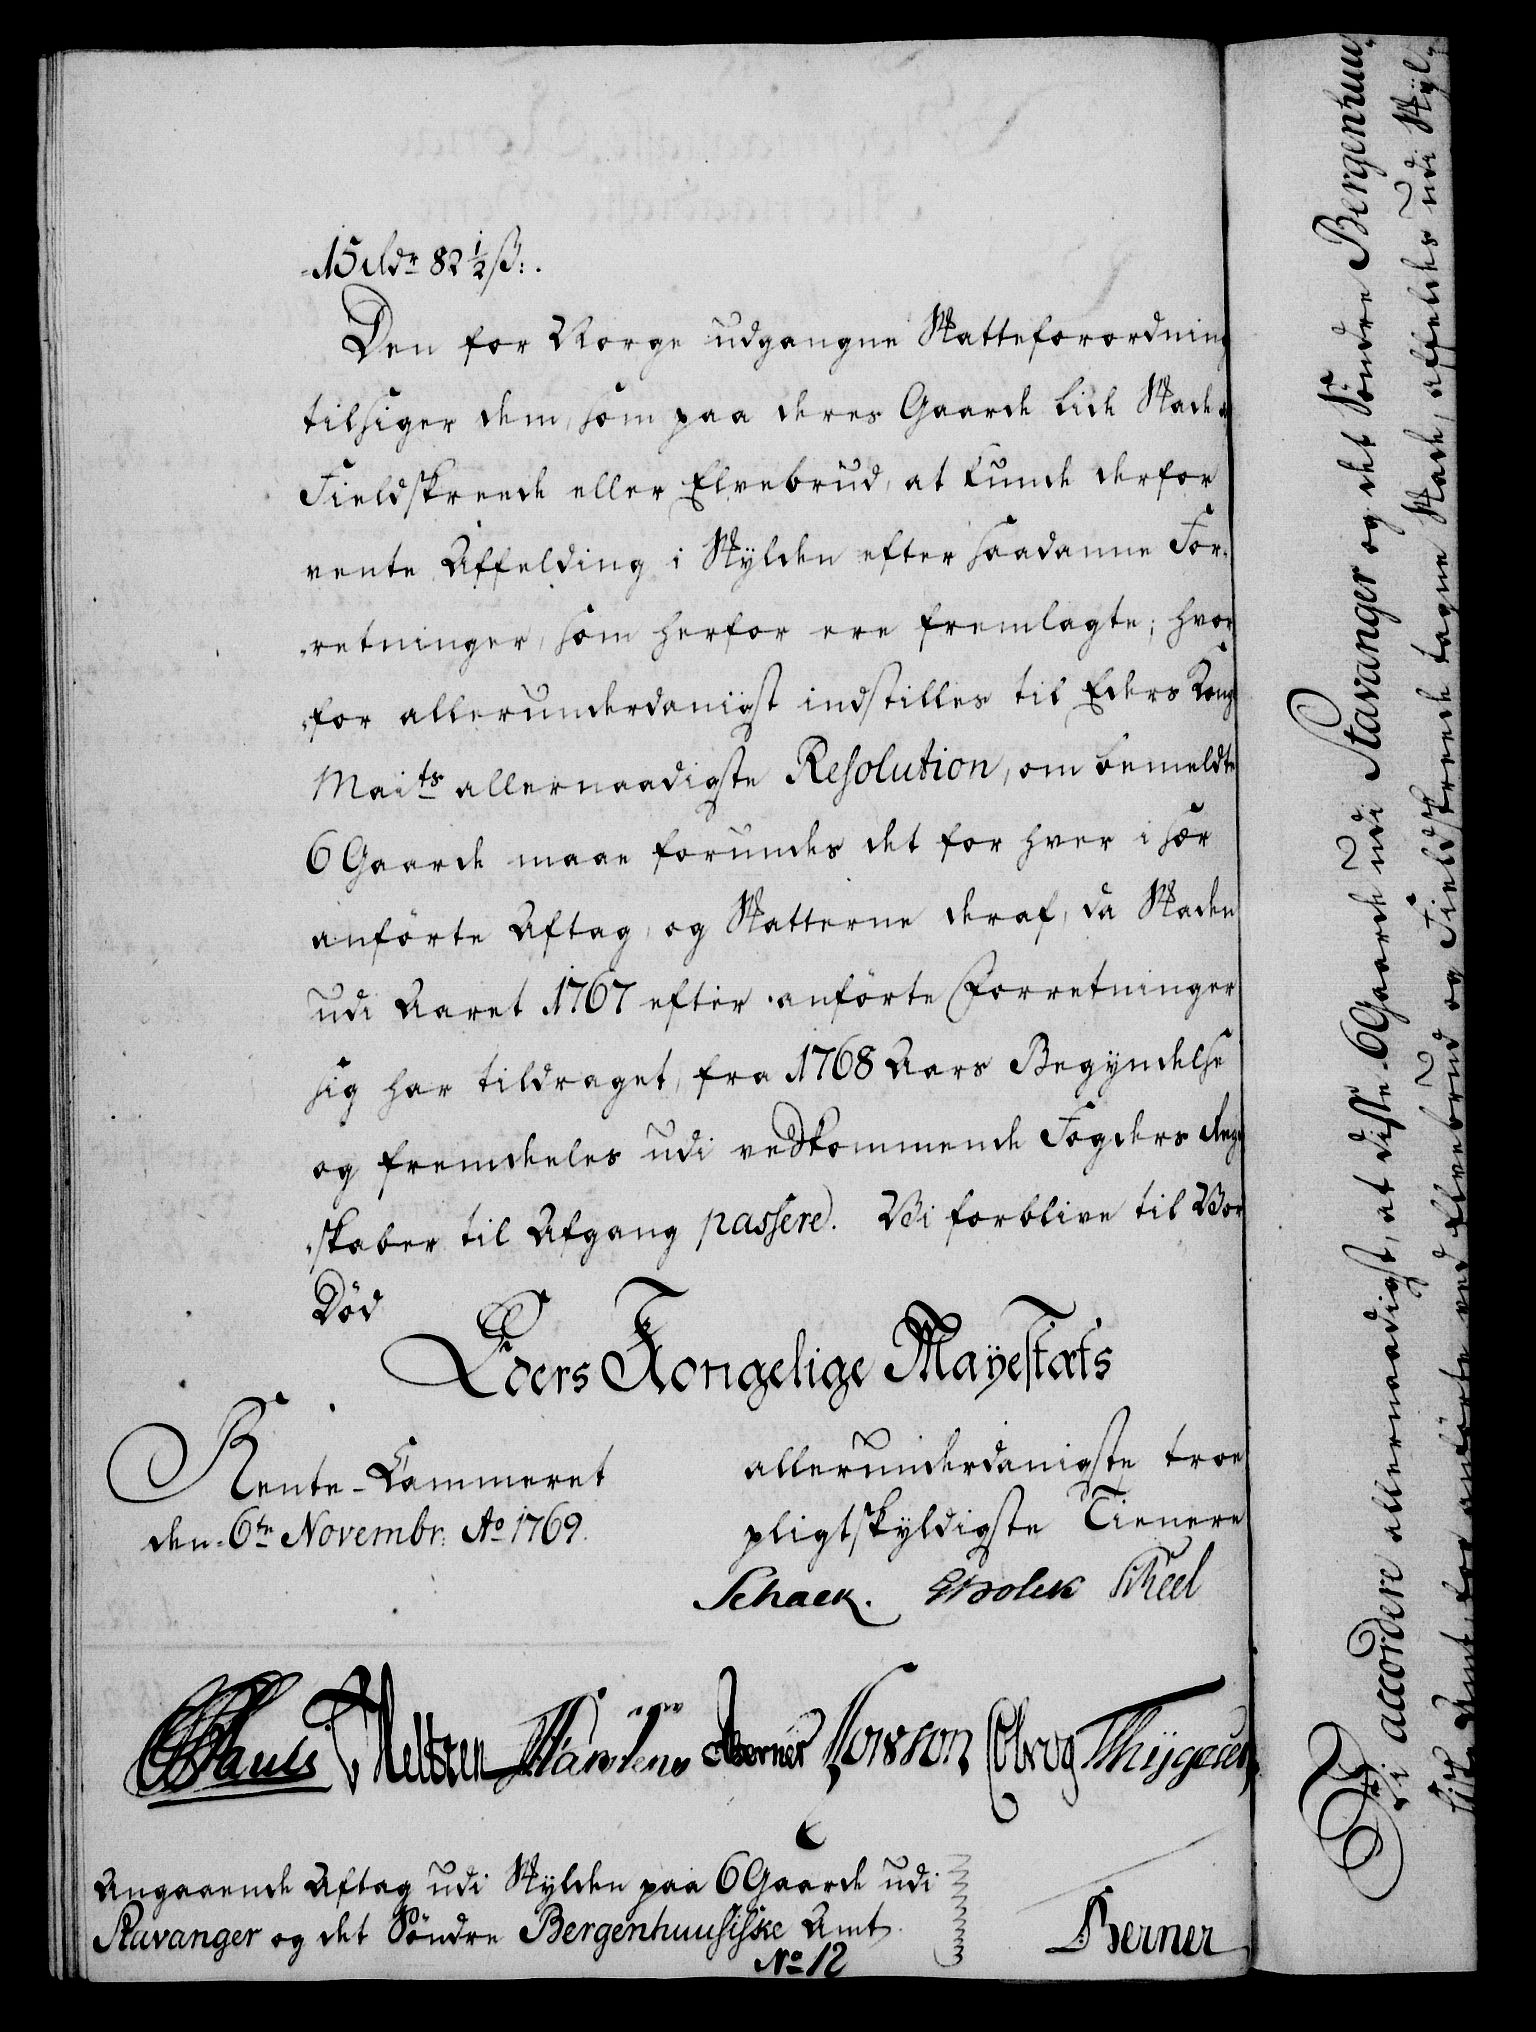 15 rdr 82 1/2 ß:.
Den for Norge udgangne Skatteforordning
tilsiger dem, som paa deres Gaarde lide Skade
Fieldskreede eller Elvebrud, at kunde derfor
vente Affelding i Skylden efter saadanne For-
retninger, som herfor ere fremlagte; hvor
for allerunderdanigst indstilles til Eders Kong
Maits allernaadigste Resolution, om bemeldte
6 Gaarde maae forundes det for hver i sær
anförte Aftag, og Skatterne deraf, da Skaden
udi Aaret 1767 efter anförte Forretninger
sig har tildraget, fra 1768 Aars Begÿndelse
og fremdeeles udi vedkommende Fogders Regn
skaber til Afgang passere. Vi forblive til Vor
Död
Eders Kongelige Mayestæts
Rente-Cammeret
den 6te Novembr: Ao 1769.
allerunderdanigste troe
pligtskyldigste Tienere
Schack. Scheel
Berner
Angaaende Aftag udi Skÿlden paa 6 Gaarde udi
Stavanger og det Söndre Bergenhuusiske Amt.
No 12
Berner
Vi accordere allernaadigst, at disse 6 Gaarde udi Stavanger og det Söndre Bergenhuu-
siske Amt, for anförte ved Elvebrud og Fieldskreede tagne Skade, affeldes udi Skÿl-